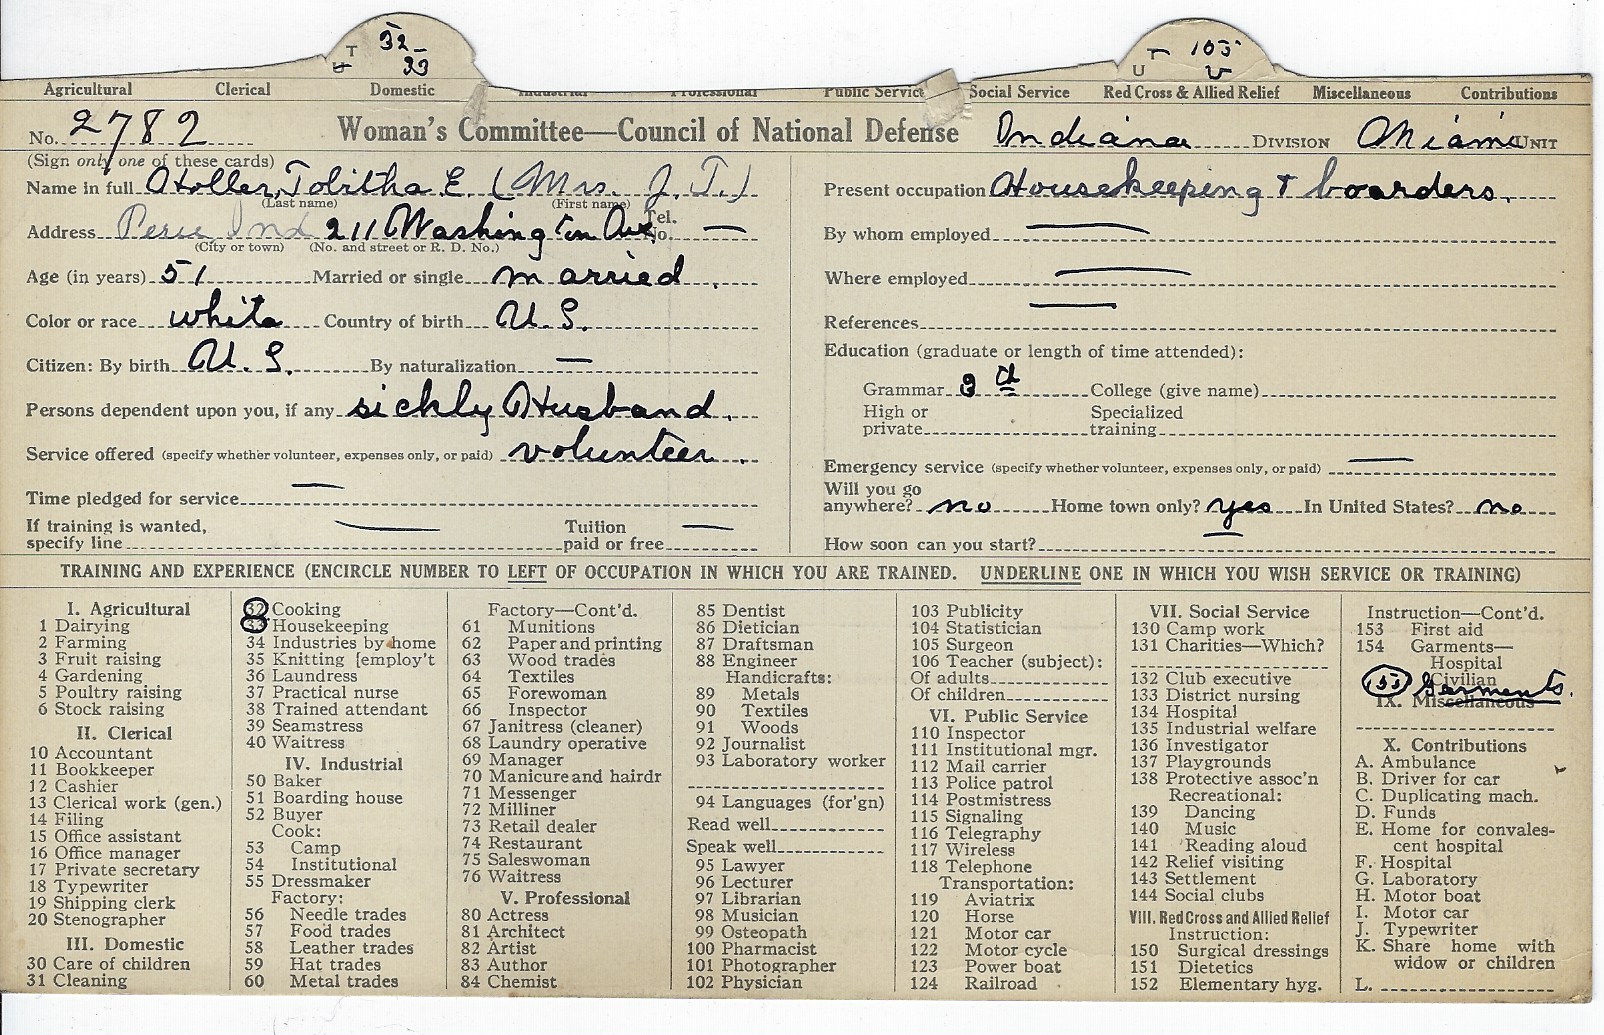 T 32-
33
T 105
U v
Agricultural Clerical Domestic Industrial Professional Public Service Social Service Red Cross & Allied Relief Miscellaneous Contributions
No. 2782 Woman's Committee—Council of National Defense Indiana DIVISION Miami UNIT
(Sign only one of these cards)
Name in full Holler, Tobitha E. (Mrs. J. T.)
(Last name) (First name)
Address Peru Ind 211 Washington Ave. Tel. No. —
(City or town) (No. and street or R. D. No.)
Age (in years) 51 Married or single married.
Color or race white Country of birth U. S.
Citizen: By birth U. S. By naturalization —
Persons dependent upon you, if any sickly Husband.
Service offered (specify whether volunteer, expenses only, or paid) volunteer.
Time pledged for service —
If training is wanted,
specify line — Tuition
paid or free —
Present occupation Housekeeping & boarders.
By whom employed —
Where employed —
References —
Education (graduate or length of time attended):
Grammar 8 th College (give name)
High or
private Specialized
training
Emergency service (specify whether volunteer, expenses only, or paid) —
Will you go
anywhere? no Home town only? yes In United States? no
How soon can you start?
TRAINING AND EXPERIENCE (ENCIRCLE NUMBER TO LEFT OF OCCUPATION IN WHICH YOU ARE TRAINED. UNDERLINE ONE IN WHICH YOU WISH SERVICE OR TRAINING)
I. Agricultural
1 Dairying
2 Farming
3 Fruit raising
4 Gardening
5 Poultry raising
6 Stock raising
II. Clerical
10 Accountant
11 Bookkeeper
12 Cashier
13 Clerical work (gen.)
14 Filing
15 Office assistant
16 Office manager
17 Private secretary
18 Typewriter
19 Shipping clerk
20 Stenographer
III. Domestic
30 Care of children
31 Cleaning
32 Cooking
33 Housekeeping
34 Industries by home
35 Knitting [employ't
36 Laundress
37 Practical nurse
38 Trained attendant
39 Seamstress
40 Waitress
IV. Industrial
50 Baker
51 Boarding house
52 Buyer
Cook:
53 Camp
54 Institutional
55 Dressmaker
Factory:
56 Needle trades
57 Food trades
58 Leather trades
59 Hat trades
60 Metal trades
Factory—Cont'd.
61 Munitions
62 Paper and printing
63 Wood trades
64 Textiles
65 Forewoman
66 Inspector
67 Janitress (cleaner)
68 Laundry operative
69 Manager
70 Manicure and hairdr
71 Messenger
72 Milliner
73 Retail dealer
74 Restaurant
75 Saleswoman
76 Waitress
V. Professional
80 Actress
81 Architect
82 Artist
83 Author
84 Chemist
85 Dentist
86 Dietician
87 Draftsman
88 Engineer
Handicrafts:
89 Metals
90 Textiles
91 Woods
92 Journalist
93 Laboratory worker
94 Languages (for'gn)
Read well
Speak well
95 Lawyer
96 Lecturer
97 Librarian
98 Musician
99 Osteopath
100 Pharmacist
101 Photographer
102 Physician
103 Publicity
104 Statistician
105 Surgeon
106 Teacher (subject):
Of adults
Of children
VI. Public Service
110 Inspector
111 Institutional mgr.
112 Mail carrier
113 Police patrol
114 Postmistress
115 Signaling
116 Telegraphy
117 Wireless
118 Telephone
Transportation:
119 Aviatrix
120 Horse
121 Motor car
122 Motor cycle
123 Power boat
124 Railroad
VII. Social Service
130 Camp work
131 Charities—Which?
132 Club executive
133 District nursing
134 Hospital
135 Industrial welfare
136 Investigator
137 Playgrounds
138 Protective assoc'n
Recreational:
139 Dancing
140 Music
141 Reading aloud
142 Relief visiting
143 Settlement
144 Social clubs
VIII. Red Cross and Allied Relief
Instruction:
150 Surgical dressings
151 Dietetics
152 Elementary hyg.
Instruction—Cont'd.
153 First aid
154 Garments—
Hospital
Civilian
155 Garments.
IX. Miscellaneous
X. Contributions
A. Ambulance
B. Driver for car
C. Duplicating mach.
D. Funds
E. Home for convales-
cent hospital
F. Hospital
G. Laboratory
H. Motor boat
I. Motor car
J. Typewriter
K. Share home with
widow or children
L.